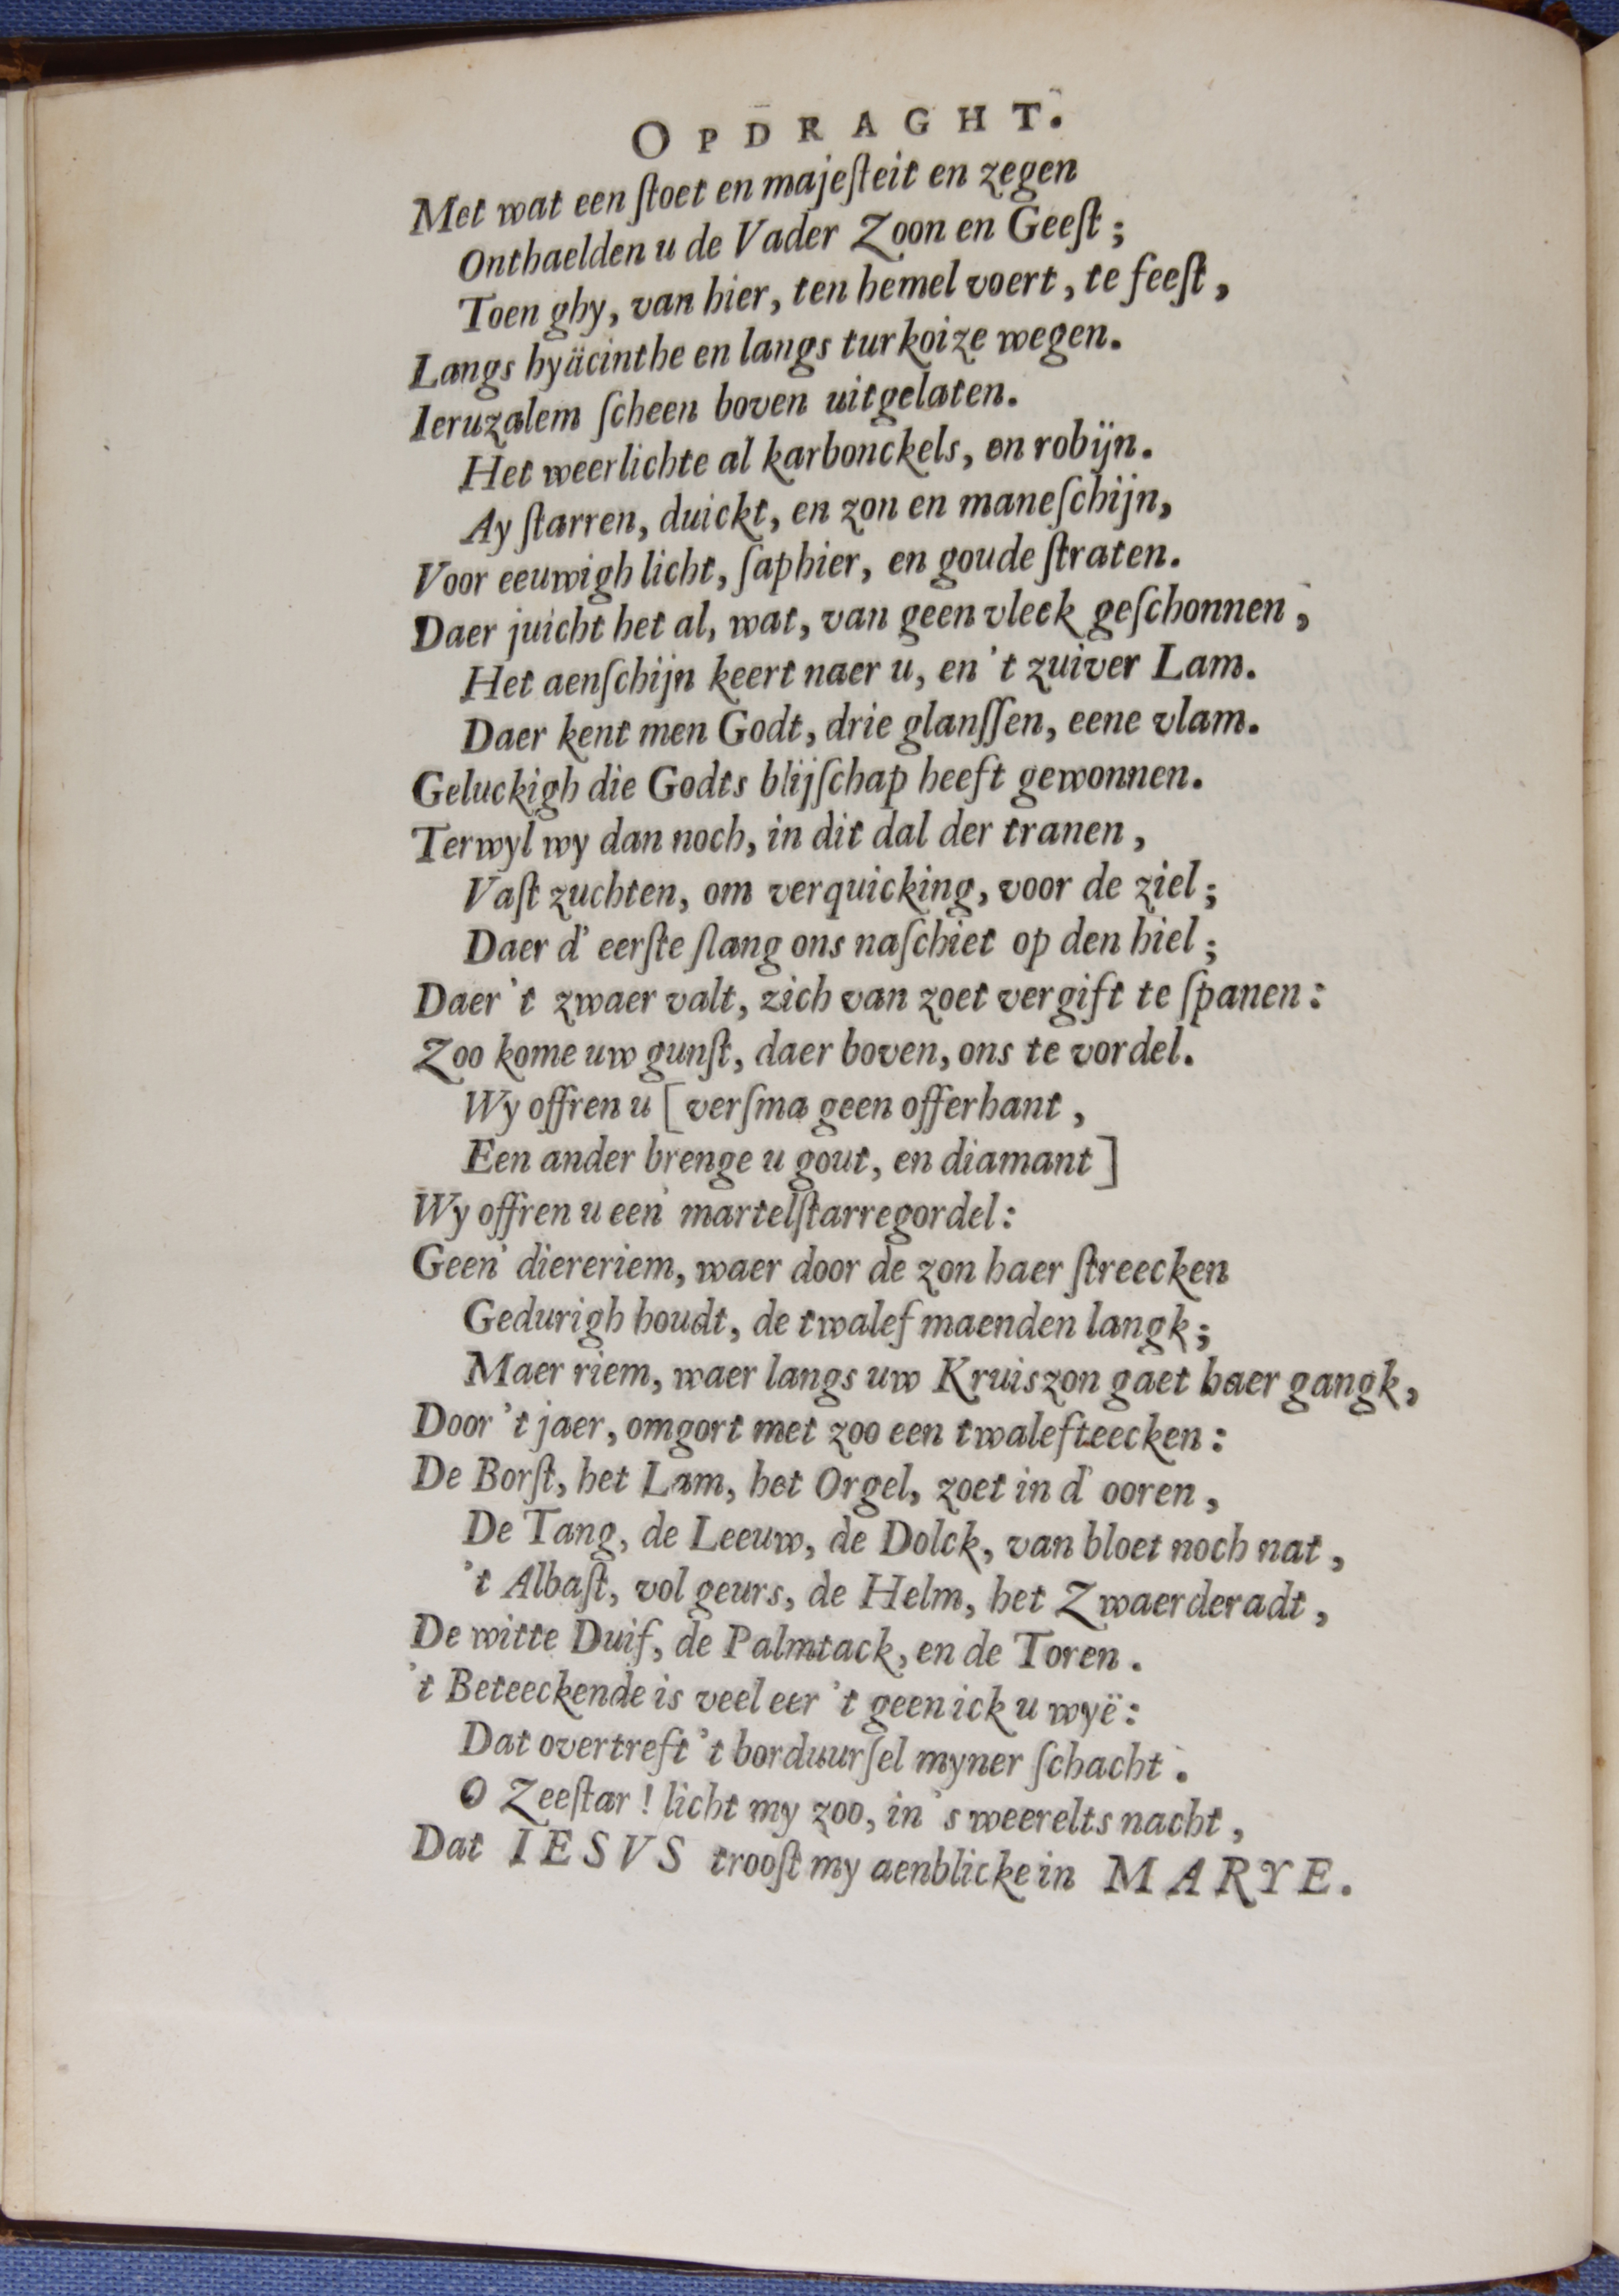 OPDRAGHT.
Met wat een ſtoet en majeſteit en zegen
Onthaelden u de Vader Zoon en Geeſt;
Toen ghy, van hier, ten hemel voert, te feeſt,
Langs hyäcinthe en langs turkoize wegen.
Ieruzalem ſcheen boven uitgelaten.
Het weerlichte al karbonckels, en robijn.
Ay ſtarren, duickt, en zon en maneſchijn,
Voor eeuwigh licht, ſaphier, en goude ſtraten.
Daer juicht het al, wat, van geen vleck geſchonnen,
Het aenſchijn keert naer u, en 't zuiver Lam.
Daer kent men Godt, drie glanſſen, eene vlam.
Geluckigh die Godts blijſchap heeft gewonnen.
Terwyl wy dan noch, in dit dal der tranen,
Vaſt zuchten, om verquicking, voor de ziel;
Daer d' eerſte ſlang ons naſchiet op den hiel;
Daer 't zwaer valt, zich van zoet vergift te ſpanen:
Zoo kome uw gunſt, daer boven, ons te vordel.
Wy offren u [verſma geen offerhant,
Een ander brenge u gout, en diamant]
Wy offren u een' martelſtarregordel:
Geen' diereriem, waer door de zon haer ſtreecken
Gedurigh houdt, de twalef maenden langk;
Maer riem, waer langs uw Kruiszon gaet haer gangk,
Door 't jaer, omgort met zoo een twalefteecken:
De Borſt, het Lam, het Orgel, zoet in d' ooren,
De Tang, de Leeuw, de Dolck, van bloet noch nat,
't Albaſt, vol geurs, de Helm, het Zwaerderadt,
De witte Duif, de Palmtack, en de Toren.
't Beteeckende is veel eer 't geen ick u wyë:
Dat overtreft 't borduurſel myner ſchacht.
O Zeeſtar! licht my zoo, in 's weerelts nacht,
Dat IESVS trooſt my aenblicke in MARYE.